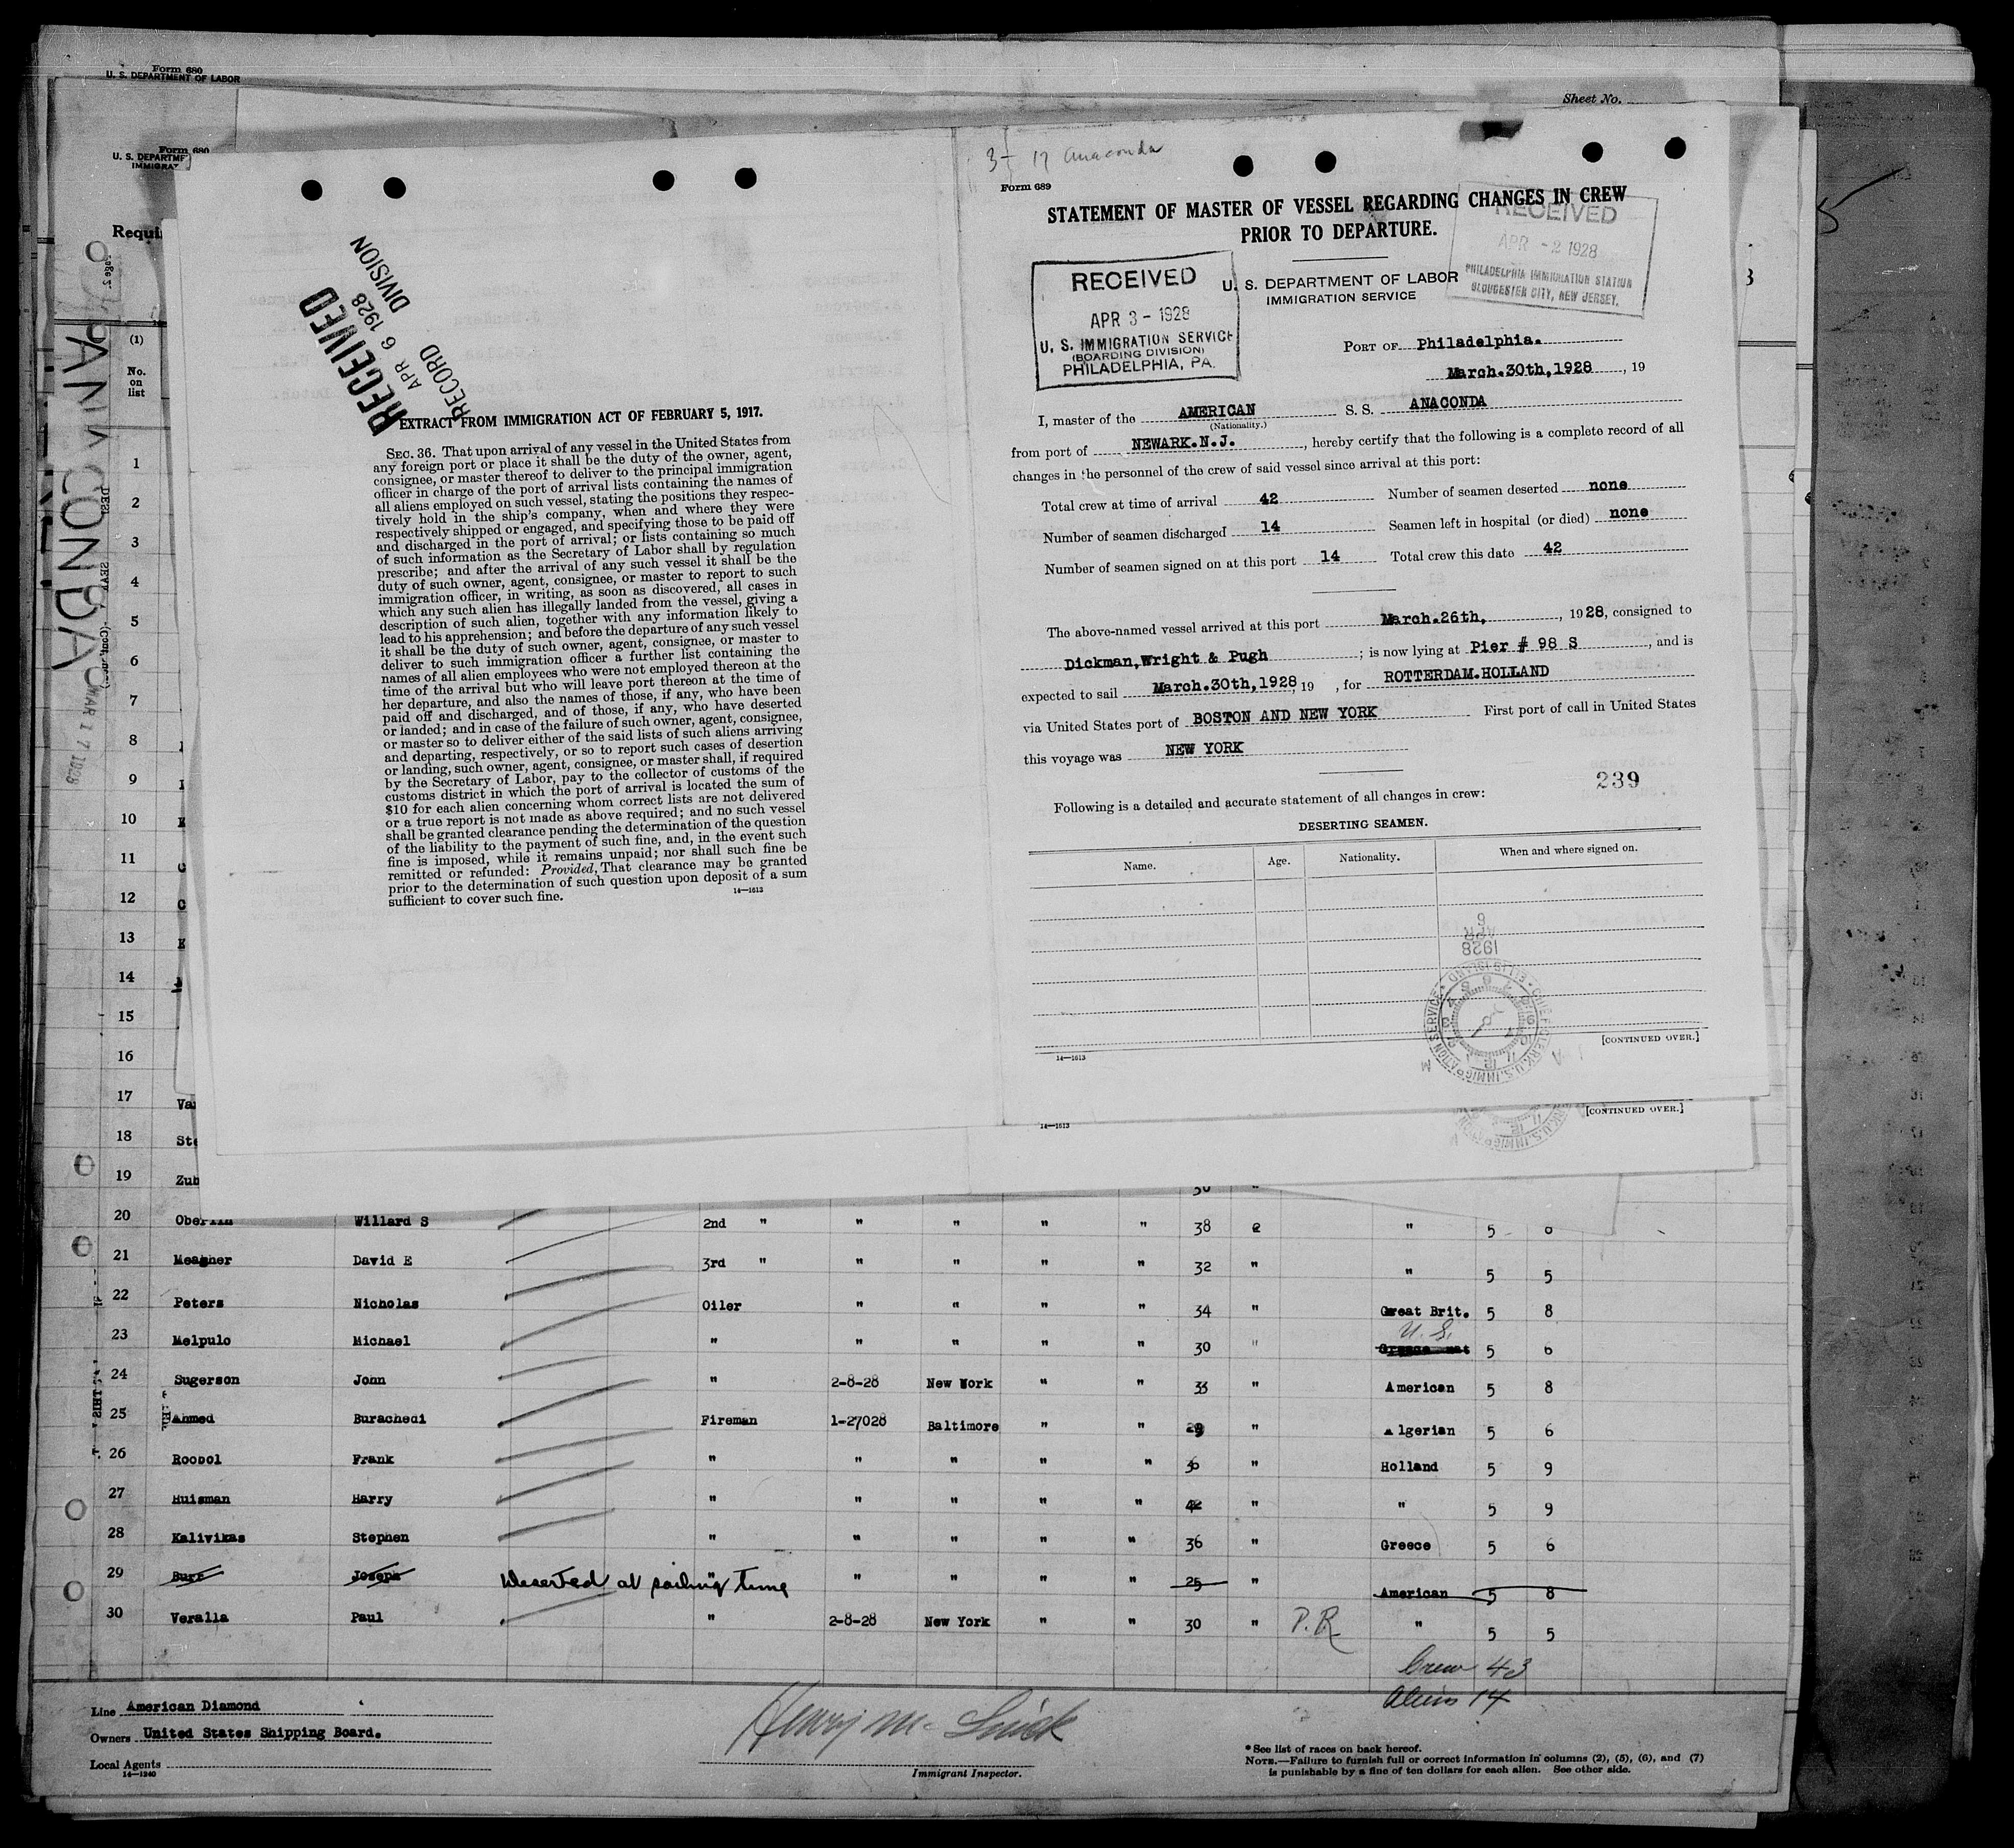 Form 680
U. S. DEPARTMENT OF LABOR
Sheet No.
Form 680
U. S. DEPARTME
IMMIGRA
Requi
(1)
No.
on
list
ANACONDA
MAR 17 1928
RECEIVED
APR 6 1928
RECORD DIVISION
EXTRACT FROM IMMIGRATION ACT OF FEBRUARY 5, 1917.
SEC. 36. That upon arrival of any vessel in the United States from
any foreign port or place it shall be the duty of the owner, agent,
consignee, or master thereof to deliver to the principal immigration
officer in charge of the port of arrival lists containing the names of
all aliens employed on such vessel, stating the positions they respec-
tively hold in the ship's company, when and where they were
respectively shipped or engaged, and specifying those to be paid off
and discharged in the port of arrival; or lists containing so much
of such information as the Secretary of Labor shall by regulation
prescribe; and after the arrival of any such vessel it shall be the
duty of such owner, agent, consignee, or master to report to such
immigration officer, in writing, as soon as discovered, all cases in
which any such alien has illegally landed from the vessel, giving a
description of such alien, together with any information likely to
lead to his apprehension; and before the departure of any such vessel
it shall be the duty of such owner, agent, consignee, or master to
deliver to such immigration officer a further list containing the
names of all alien employees who were not employed thereon at the
time of the arrival but who will leave port thereon at the time of
her departure, and also the names of those, if any, who have been
paid off and discharged, and of those, if any, who have deserted
or landed; and in case of the failure of such owner, agent, consignee,
or master so to deliver either of the said lists of such aliens arriving
and departing, respectively, or so to report such cases of desertion
or landing, such owner, agent, consignee, or master shall, if required
by the Secretary of Labor, pay to the collector of customs of the
customs district in which the port of arrival is located the sum of
$10 for each alien concerning whom correct lists are not delivered
or a true report is not made as above required; and no such vessel
shall be granted clearance pending the determination of the question
of the liability to the payment of such fine, and, in the event such
fine is imposed, while it remains unpaid; nor shall such fine be
remitted or refunded: Provided, That clearance may be granted
prior to the determination of such question upon deposit of a sum
sufficient to cover such fine.
14—1613
3- 17 Anaconda
Form 689
STATEMENT OF MASTER OF VESSEL REGARDING CHANGES IN CREW
PRIOR TO DEPARTURE.
RECEIVED
APR -2 1928
PHILADELPHIA IMMIGRATION STATION
GLOUCESTER CITY, NEW JERSEY.
RECEIVED
APR 3 - 1928
U. S. IMMIGRATION SERVICE
(BOARDING DIVISION)
PHILADELPHIA, PA.
U. S. DEPARTMENT OF LABOR
IMMIGRATION SERVICE
PORT OF Philadelphia.
March.30th,1928, 19
I, master of the AMERICAN S. S. ANACONDA
(Nationality.)
from port of NEWARK.N.J., hereby certify that the following is a complete record of all
changes in the personnel of the crew of said vessel since arrival at this port:
Total crew at time of arrival 42 Number of seamen deserted none
Number of seamen discharged 14 Seamen left in hospital (or died) none
Number of seamen signed on at this port 14 Total crew this date 42
The above-named vessel arrived at this port March.26th, , 1928, consigned to
Dickman,Wright & Pugh ; is now lying at Pier # 98 S , and is
expected to sail March.30th,1928, 19 , for ROTTERDAM.HOLLAND
via United States port of BOSTON AND NEW YORK First port of call in United States
this voyage was NEW YORK
239
Following is a detailed and accurate statement of all changes in crew:
DESERTING SEAMEN.
Name. Age. Nationality. When and where signed on.
1928
APR
6
CHIEF CLERK, U.S. IMMIGRATION SERVICE ELLIS ISLAND
14—1613
[CONTINUED OVER.]
14—1613
[CONTINUED OVER.]
1
2
3
4
5
6
7
8
9
10
11
12
13
14
15
16
17 Va
18 Ste
19 Zub
20 Oberlin Willard S 2nd " " " " " 38 " 5
21 Meagher David E 3rd " " " " " 32 " " 5 5
22 Peters Nicholas Oiler " " " " 34 " Great Brit. 5 8
23 Melpulo Michael " " " " " 30 " U. S. 5 6
24 Sugerson John " 2-8-28 New York " " 33 " American 5 8
25 Ahmed Burachedi Fireman 1-27028 Baltimore " " 29 " Algerian 5 6
26 Roobol Frank " " " " " 36 " Holland 5 9
27 Huisman Harry " " " " " 42 " " 5 9
28 Kalivikas Stephen " " " " " 36 " Greece 5 6
29 Burr Joseph Deserted at sailing time " " " " " 25 " American 5 8
30 Veralla Paul " 2-8-28 New York " " 30 " P.R. " 5 5
Crew 43
Aliens 14
Line American Diamond
Owners United States Shipping Board.
Local Agents
14—1240
Immigrant Inspector.
* See list of races on back hereof.
NOTE.—Failure to furnish full or correct information in columns (2), (5), (6), and (7)
is punishable by a fine of ten dollars for each alien. See other side.